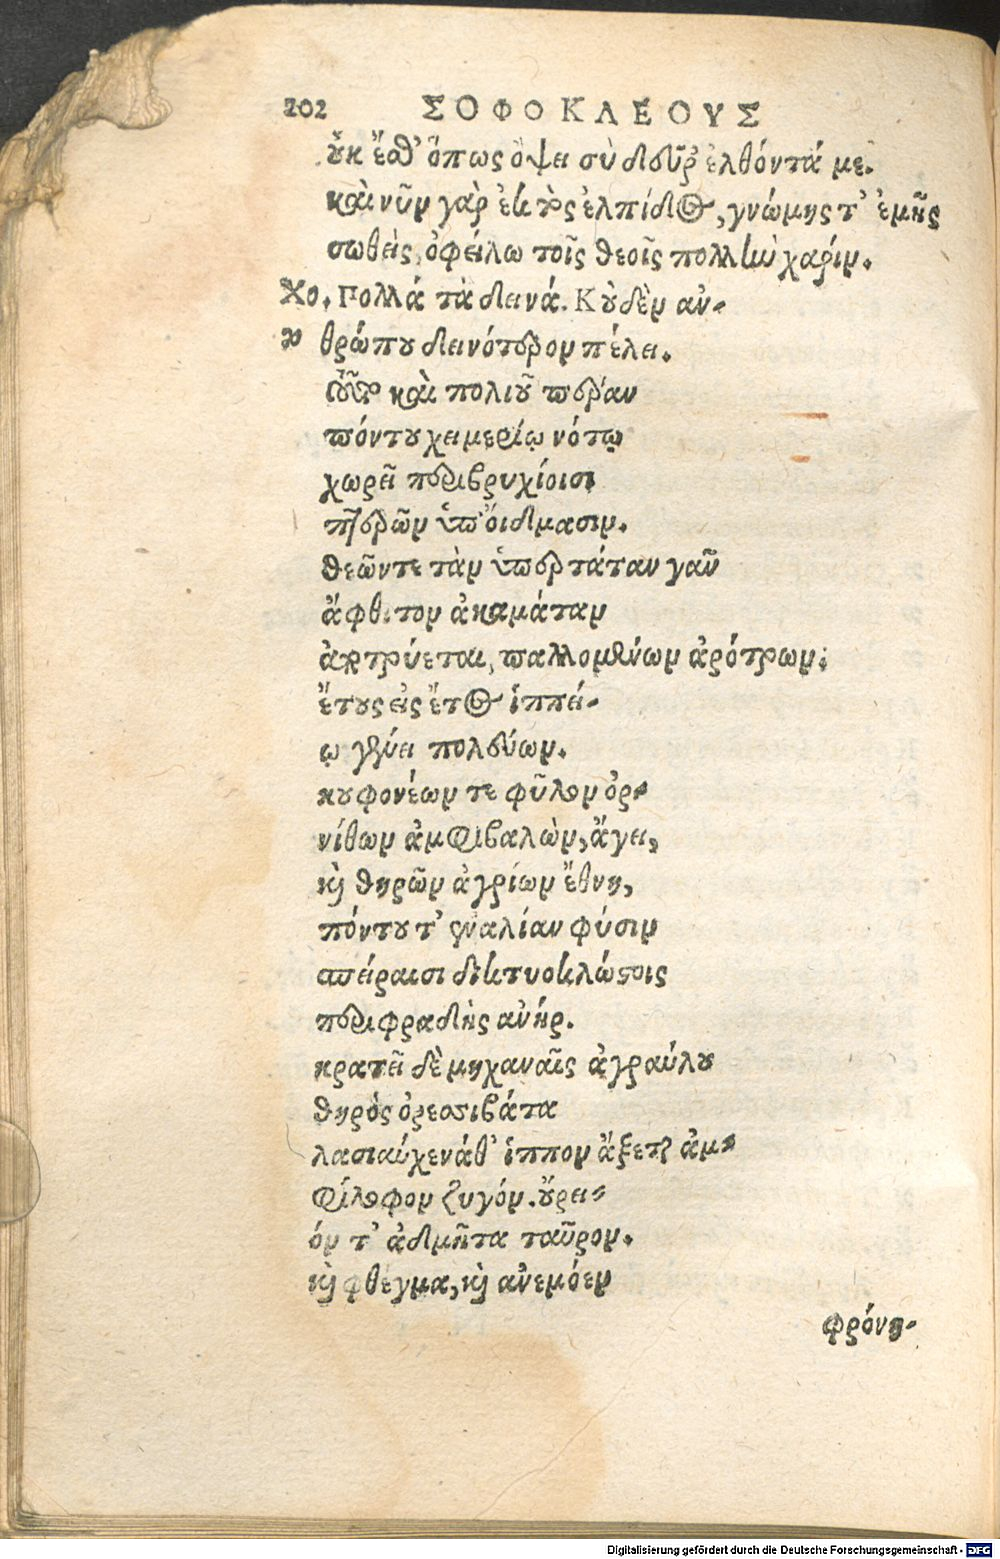 202 ΣΟΦΟΚΛΕΟΥΣ
οὐκ ἔσθ' ὅπως ὄψει σὺ δεῦρ' ἐλθόντά με.
καὶ νῦν γὰρ ἐκτὸς ἐλπίδος, γνώμης τ' ἐμῆς
σωθεὶς, ὀφείλω τοῖς θεοῖς πολλὴν χάριν.
Χο. Πολλά τὰ δεινά. Κ' οὐδὲν ἀν-
θρώπου δεινότερον πέλει.
τοῦτο καὶ πολιοῦ πέραν
πόντου χειμερίῳ νότῳ
χωρεῖ περιβρυχίοισι
περῶν ὑπ' οἴδμασιν.
θεῶν τε τὰν ὑπερτάταν γᾶν
ἄφθιτον ἀκαμάταν
ἀποτρύεται, παλλομένων ἀρότρων,
ἔτους εἰς ἔτος ἱππεί-
ῳ γένει πολεύων.
κουφονέων τε φῦλον ὀρ-
νίθων ἀμφιβαλὼν, ἄγει,
καὶ θηρῶν ἀγρίων ἔθνη,
πόντου τ' εἰναλίαν φύσιν
σπείραισι δικτυοκλώστοις
περιφραδὴς ἀνήρ.
κρατεῖ δὲ μηχαναῖς ἀγραύλου
θηρὸς ὀρεσσιβάτα
λασιαύχενάθ' ἵππον ἄξεται ἀμ-
φίλοφον ζυγόν. οὔρει-
όν τ' ἀδμῆτα ταῦρον.
καὶ φθέγμα, καὶ ἀνεμόεν
φρόνη-
Digitalisierung gefördert durch die Deutsche Forschungsgemeinschaft - DFG